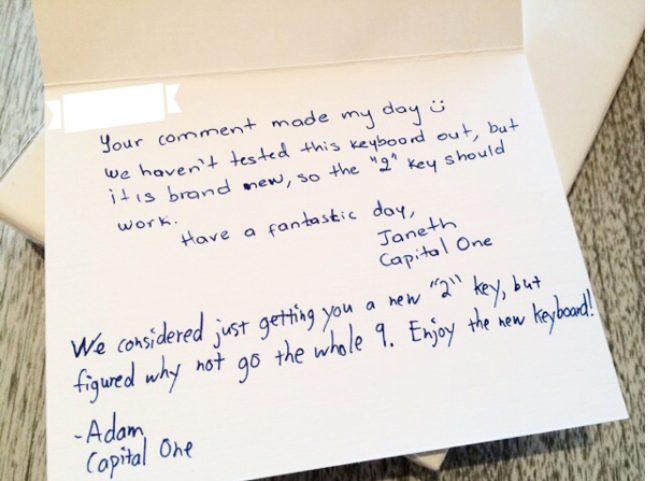 Your comment made my day ☺
We haven't tested this keyboard out, but
it is brand new, so the "2" key should
work.
Have a fantastic day,
Janeth
Capital One
We considered just getting you a new "2" key, but
figured why not go the whole 9. Enjoy the new keyboard!
-Adam
Capital One